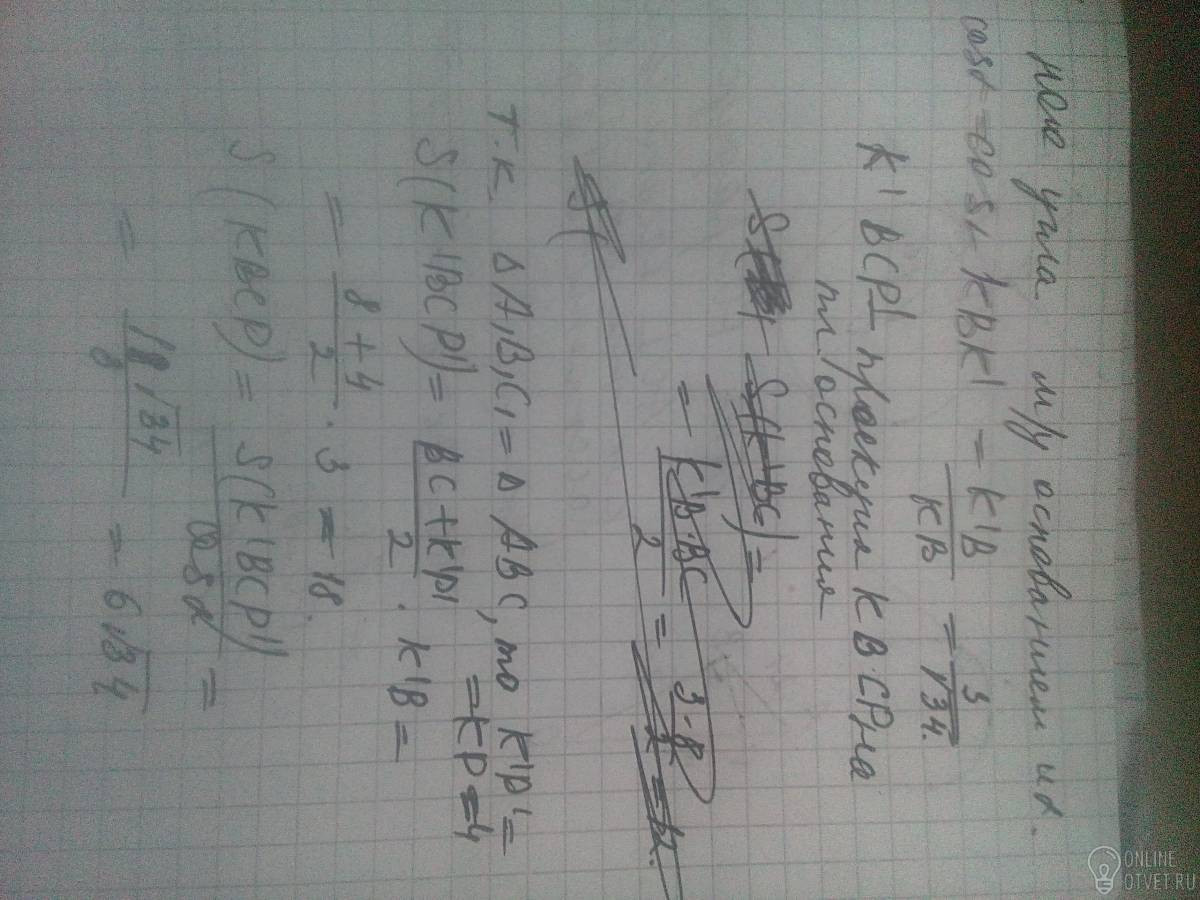 угла м/у основанием и α.
cos α = cos ∠ KBK' = K'B / KB = 3 / √34.
K'BCP' проекция KBCP на
пл. основания
S(K'BC) =
= K'B·BC / 2 = 3·8 / 2
Т.к. Δ A₁B₁C₁ = Δ ABC, то K'P' =
= KP = 4
S(K'BCP') = BC + K'P' / 2 · K'B =
= 8 + 4 / 2 · 3 = 18.
S(KBCP) = S(K'BCP') / cos α =
= 18√34 / 3 = 6√34
ONLINE
OTVET.RU